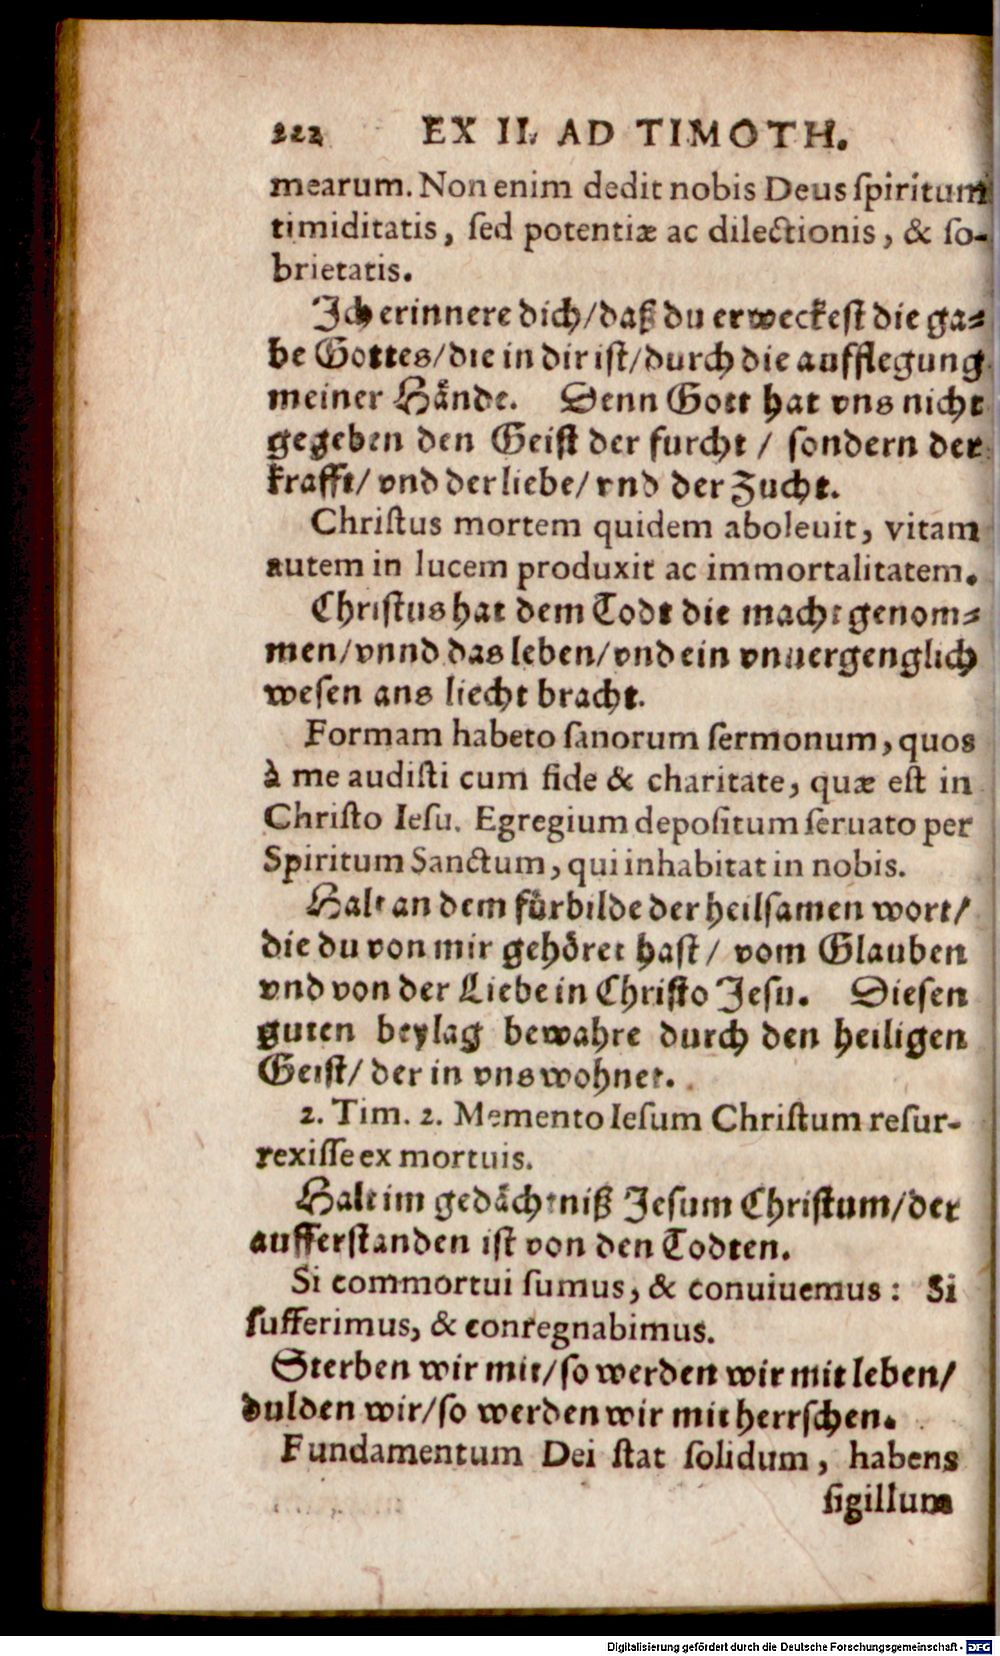 222 EX II. AD TIMOTH.
mearum. Non enim dedit nobis Deus ſpiritum
timiditatis, ſed potentiæ ac dilectionis, & ſo-
brietatis.
Ich erinnere dich/daß du erweckeſt die ga⸗
be Gottes/die in dir iſt/durch die aufflegung
meiner Hände. Denn Gott hat vns nicht
gegeben den Geiſt der furcht / ſondern der
krafft/ vnd der liebe/ vnd der Zucht.
Chriſtus mortem quidem aboleuit, vitam
autem in lucem produxit ac immortalitatem.
Chriſtus hat dem Todt die macht genom⸗
men/vnnd das leben/vnd ein vnuergenglich
weſen ans liecht bracht.
Formam habeto ſanorum ſermonum, quos
à me audiſti cum fide & charitate, quæ eſt in
Chriſto Ieſu. Egregium depoſitum ſeruato per
Spiritum Sanctum, qui inhabitat in nobis.
Halt an dem fürbilde der heilſamen wort/
die du von mir gehöret haſt/ vom Glauben
vnd von der Liebe in Chriſto Jeſu. Dieſen
guten beylag bewahre durch den heiligen
Geiſt/ der in vns wohnet.
2. Tim. 2. Memento Ieſum Chriſtum reſur-
rexiſſe ex mortuis.
Halt im gedächtniß Jeſum Chriſtum/der
aufferſtanden iſt von den Todten.
Si commortui ſumus, & conuiuemus: Si
ſufferimus, & conregnabimus.
Sterben wir mit/ſo werden wir mit leben/
dulden wir/ſo werden wir mit herrſchen.
Fundamentum Dei ſtat ſolidum, habens
ſigillum
Digitalisierung gefördert durch die Deutsche Forschungsgemeinschaft - DFG